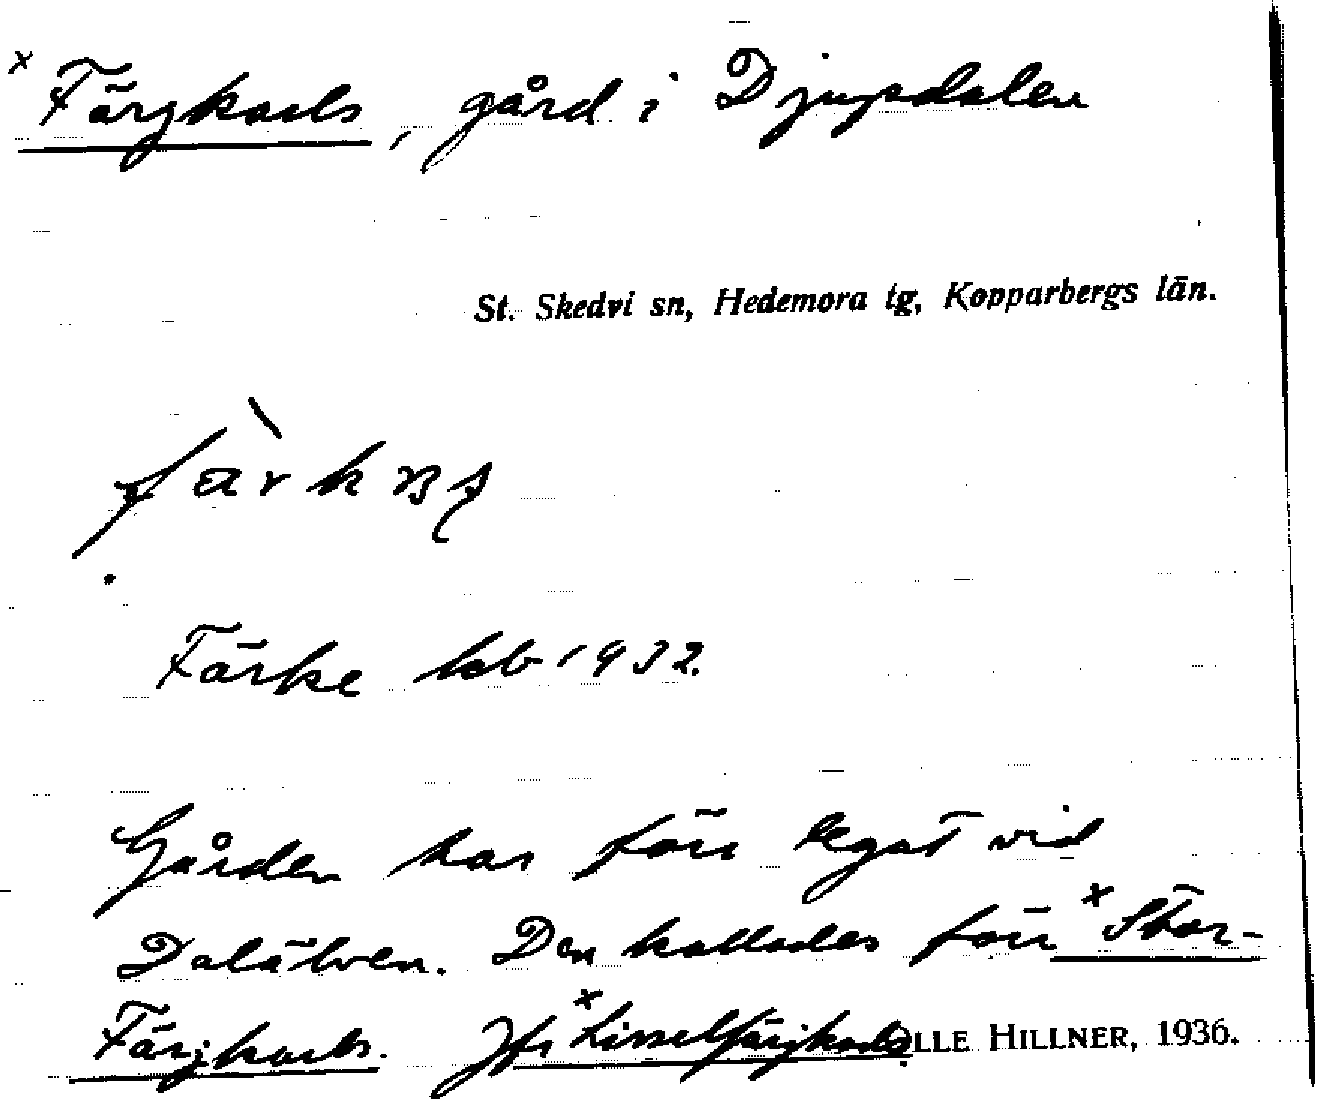 × Färgkarls, gård i Djupdalen
St. Skedvi sn, Hedemora tg, Kopparbergs län.
Färke kb 1932.
Gården har förr legat vid
Dalälven. Den kallades förr × Stor-
Färjkarls. Jfr × Lisselfärjkarls OLLE HILLNER, 1936.